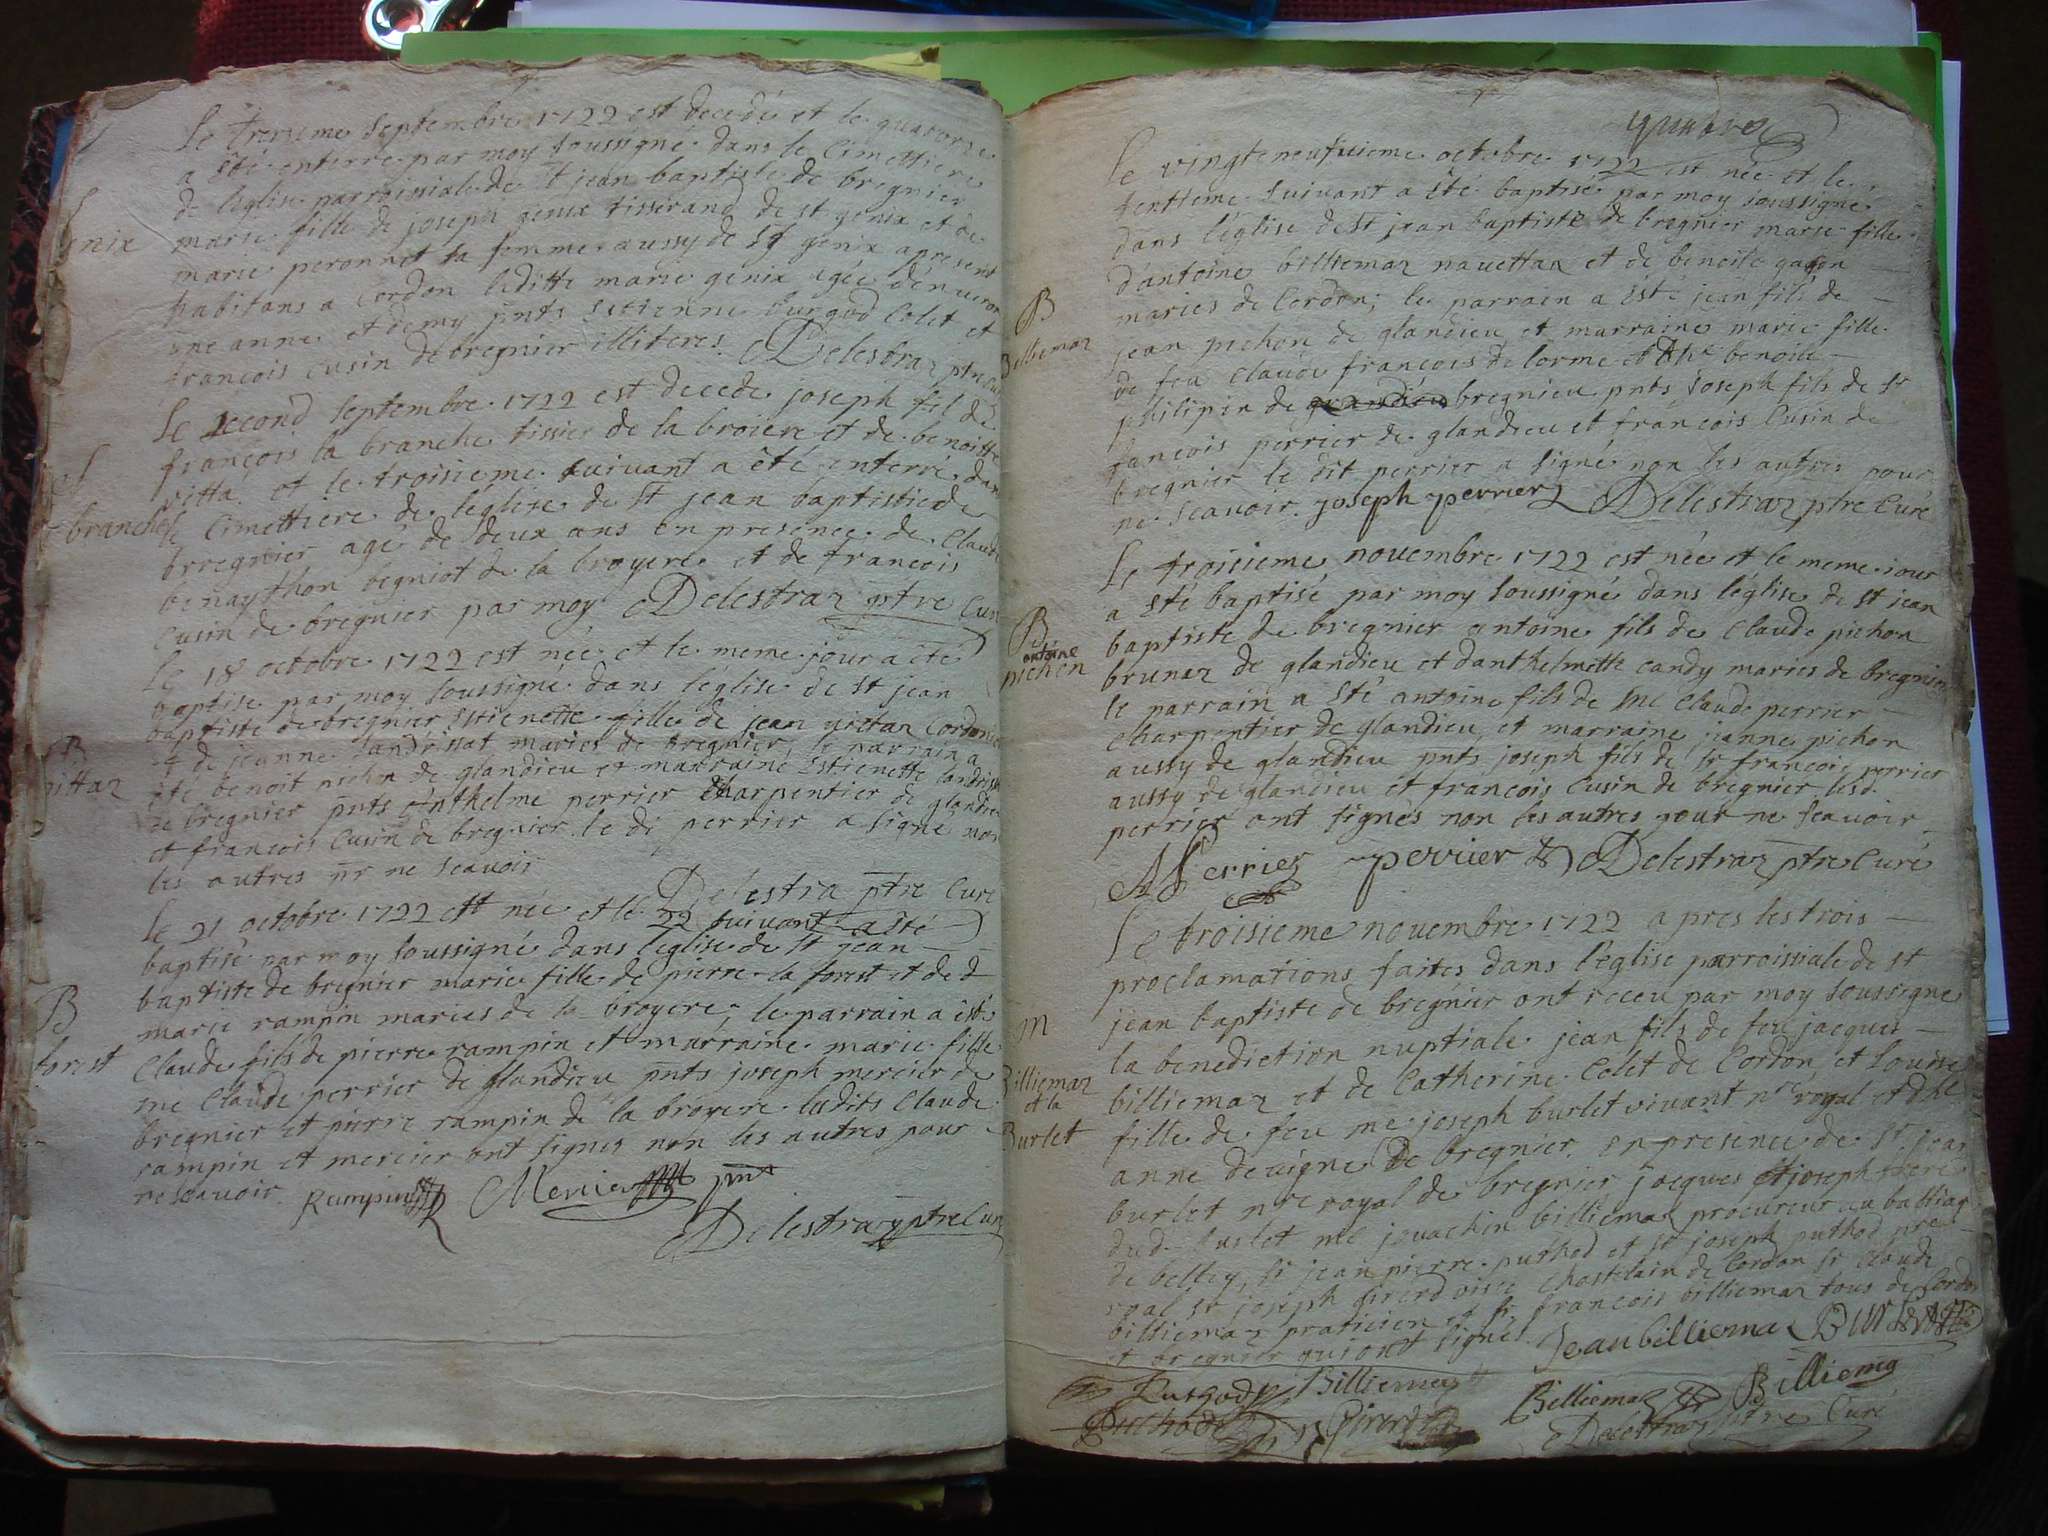 Le treizieme Septembre 1722 est decedé et le quatorze
a êté enterré par moy soussigné dans le Cimettiere
de l'eglise parroissiale de St jean baptiste de bregnier
genix
marie fille de joseph genix tisserand de st genix et de
marie peronnet sa femme aussy de St genix apresent
habitans a Cordon laditte marie genix agée d'environ
une anne et demy pnts Estienne Colet et
françois cusin de bregnier illiteres. Delestraz ptre Curé
Le second Septembre 1722 est decede joseph fil de
françois la branche tissier de la broiere et de benoitte
S
vitta et le troisieme suivant a êté enterré dans
branche
le Cimettiere de l'eglise de St jean baptiste de
bregnier agé de deux ans en presence de Claude
benaython begniot de la broyere et de francois
Cusin de bregnier par moy Delestraz ptre Curé
Le 18 octobre 1722 est née et le meme jour a êté
baptise par moy soussigné dans l'église de st jean
baptiste de bregnier Estienette fille de jean pittaz Cordonier
B
pittaz
et de jeanne Landrissat mariés de bregnier, le parrain a
êté benoit pichon de glandieu et marraine Estienette Landrissat
de bregnier pnts Enthelme perrier Charpentier de glandieu
et françois Cusin de bregnier le di perrier a signé non
les autres pr ne scavoir
Delestra ptre Curé
Le 21 octobre 1722 est née et le 22 suivant a êté
baptisé par moy soussigné dans l'eglise de St jean
baptiste de bregnier marie fille de pierre la forest et de
B
marie rampin maries de la broyere; le parrain a été
forest
Claude fils de pierre rampin et marraine marie fille
me Claude perrier de glandieu pnts joseph mercier de
bregnier et pierre rampin de la broyere lesdits Claude
rampin et mercier ont signes non les autres pour
ne scavoir. Rampin Mercier pnt
Delestraz ptre Curé
quatre
Le vingt neufuieme octobre 1722 est née et le
trentieme suivant a êté baptisé par moy soussigné
dans l'église de St jean baptiste de bregnier marie fille
d'antoine billiemaz navettaz et de benoite gagon
B
Billiemaz
maries de Cordon; le parrain a Esté jean fils de
jean pichon de glandieu et marraine marie fille
de feu Claude francois de lorme et de benoite
philipin de grandieu bregnieu pnts joseph fils de Sr
francois perrier de glandieu et françois Cusin de
bregnier le dit perrier a signé non les autres pour
ne scavoir. joseph perrier Delestraz ptre Curé
Le troisieme novembre 1722 est née et le meme iour
a Eté baptisé par moy soussigné dans l'église de st jean
B
antoine
pichon
baptiste de bregnier antoine fils de Claude pichon
brunaz de glandieu et danthelmette candy maries de bregnier
le parrain a Eté antoine fils de me Claude perrier
Charpentier de glandieu, et marraine jeanne pichon
aussy de glandieu pnts joseph fils de sr francois perrier
aussy de glandieu et françois Cusin de bregnier lesd.
perrier ont signés non les autres pour ne scavoir
Perrier perrier Delestraz ptre Curé
Le troisieme novembre 1722 apres les trois
proclamations faites dans l'église parroissiale de st
M
jean baptiste de bregnier ont receu par moy soussigné
la benediction nuptiale jean fils de feu jacques
Billiemaz
et la
Burlet
billiemaz et de Catherine Colet de Cordon et Louise
fille de feu me joseph burlet vivant nre royal et dlle
anne devigne de bregnier en presence de Sr jean
burlet nre royal de bregnier jacques et joseph frere
dud. burlet me jouachin billiemaz procureur au balliage
de belley, Sr jean pierre puthod et sr joseph puthod nre
royal sr joseph girerd vice Chastelain de Cordon Sr Claude
billiemaz praticien et Sr françois billiemaz tous de Cordon
et bregnier qui ont signé. Jean billiemaz Burlet
Puthod Billiemaz Billiemaz Billiemaz
Puthod Girerd Delestraz ptre Curé